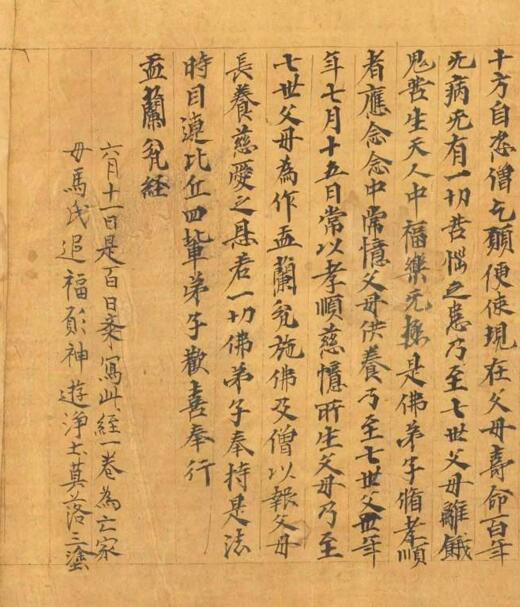 十方自恣僧乞願便使現在父母壽命百年
无病无有一切苦惱之患乃至七世父母離餓
鬼苦生天人中福樂无極是佛弟子脩孝順
者應念念中常憶父母供養乃至七世父母年
年七月十五日常以孝順慈憶所生父母乃至
七世父母為作盂蘭瓫施佛及僧以報父母
長養慈愛之恩若一切佛弟子奉持是法
時目連比丘四輩弟子歡喜奉行
盂蘭瓫経
六月十一日是百日齋寫此経一卷為亡家
母馬氏追福願神遊淨土莫落三塗